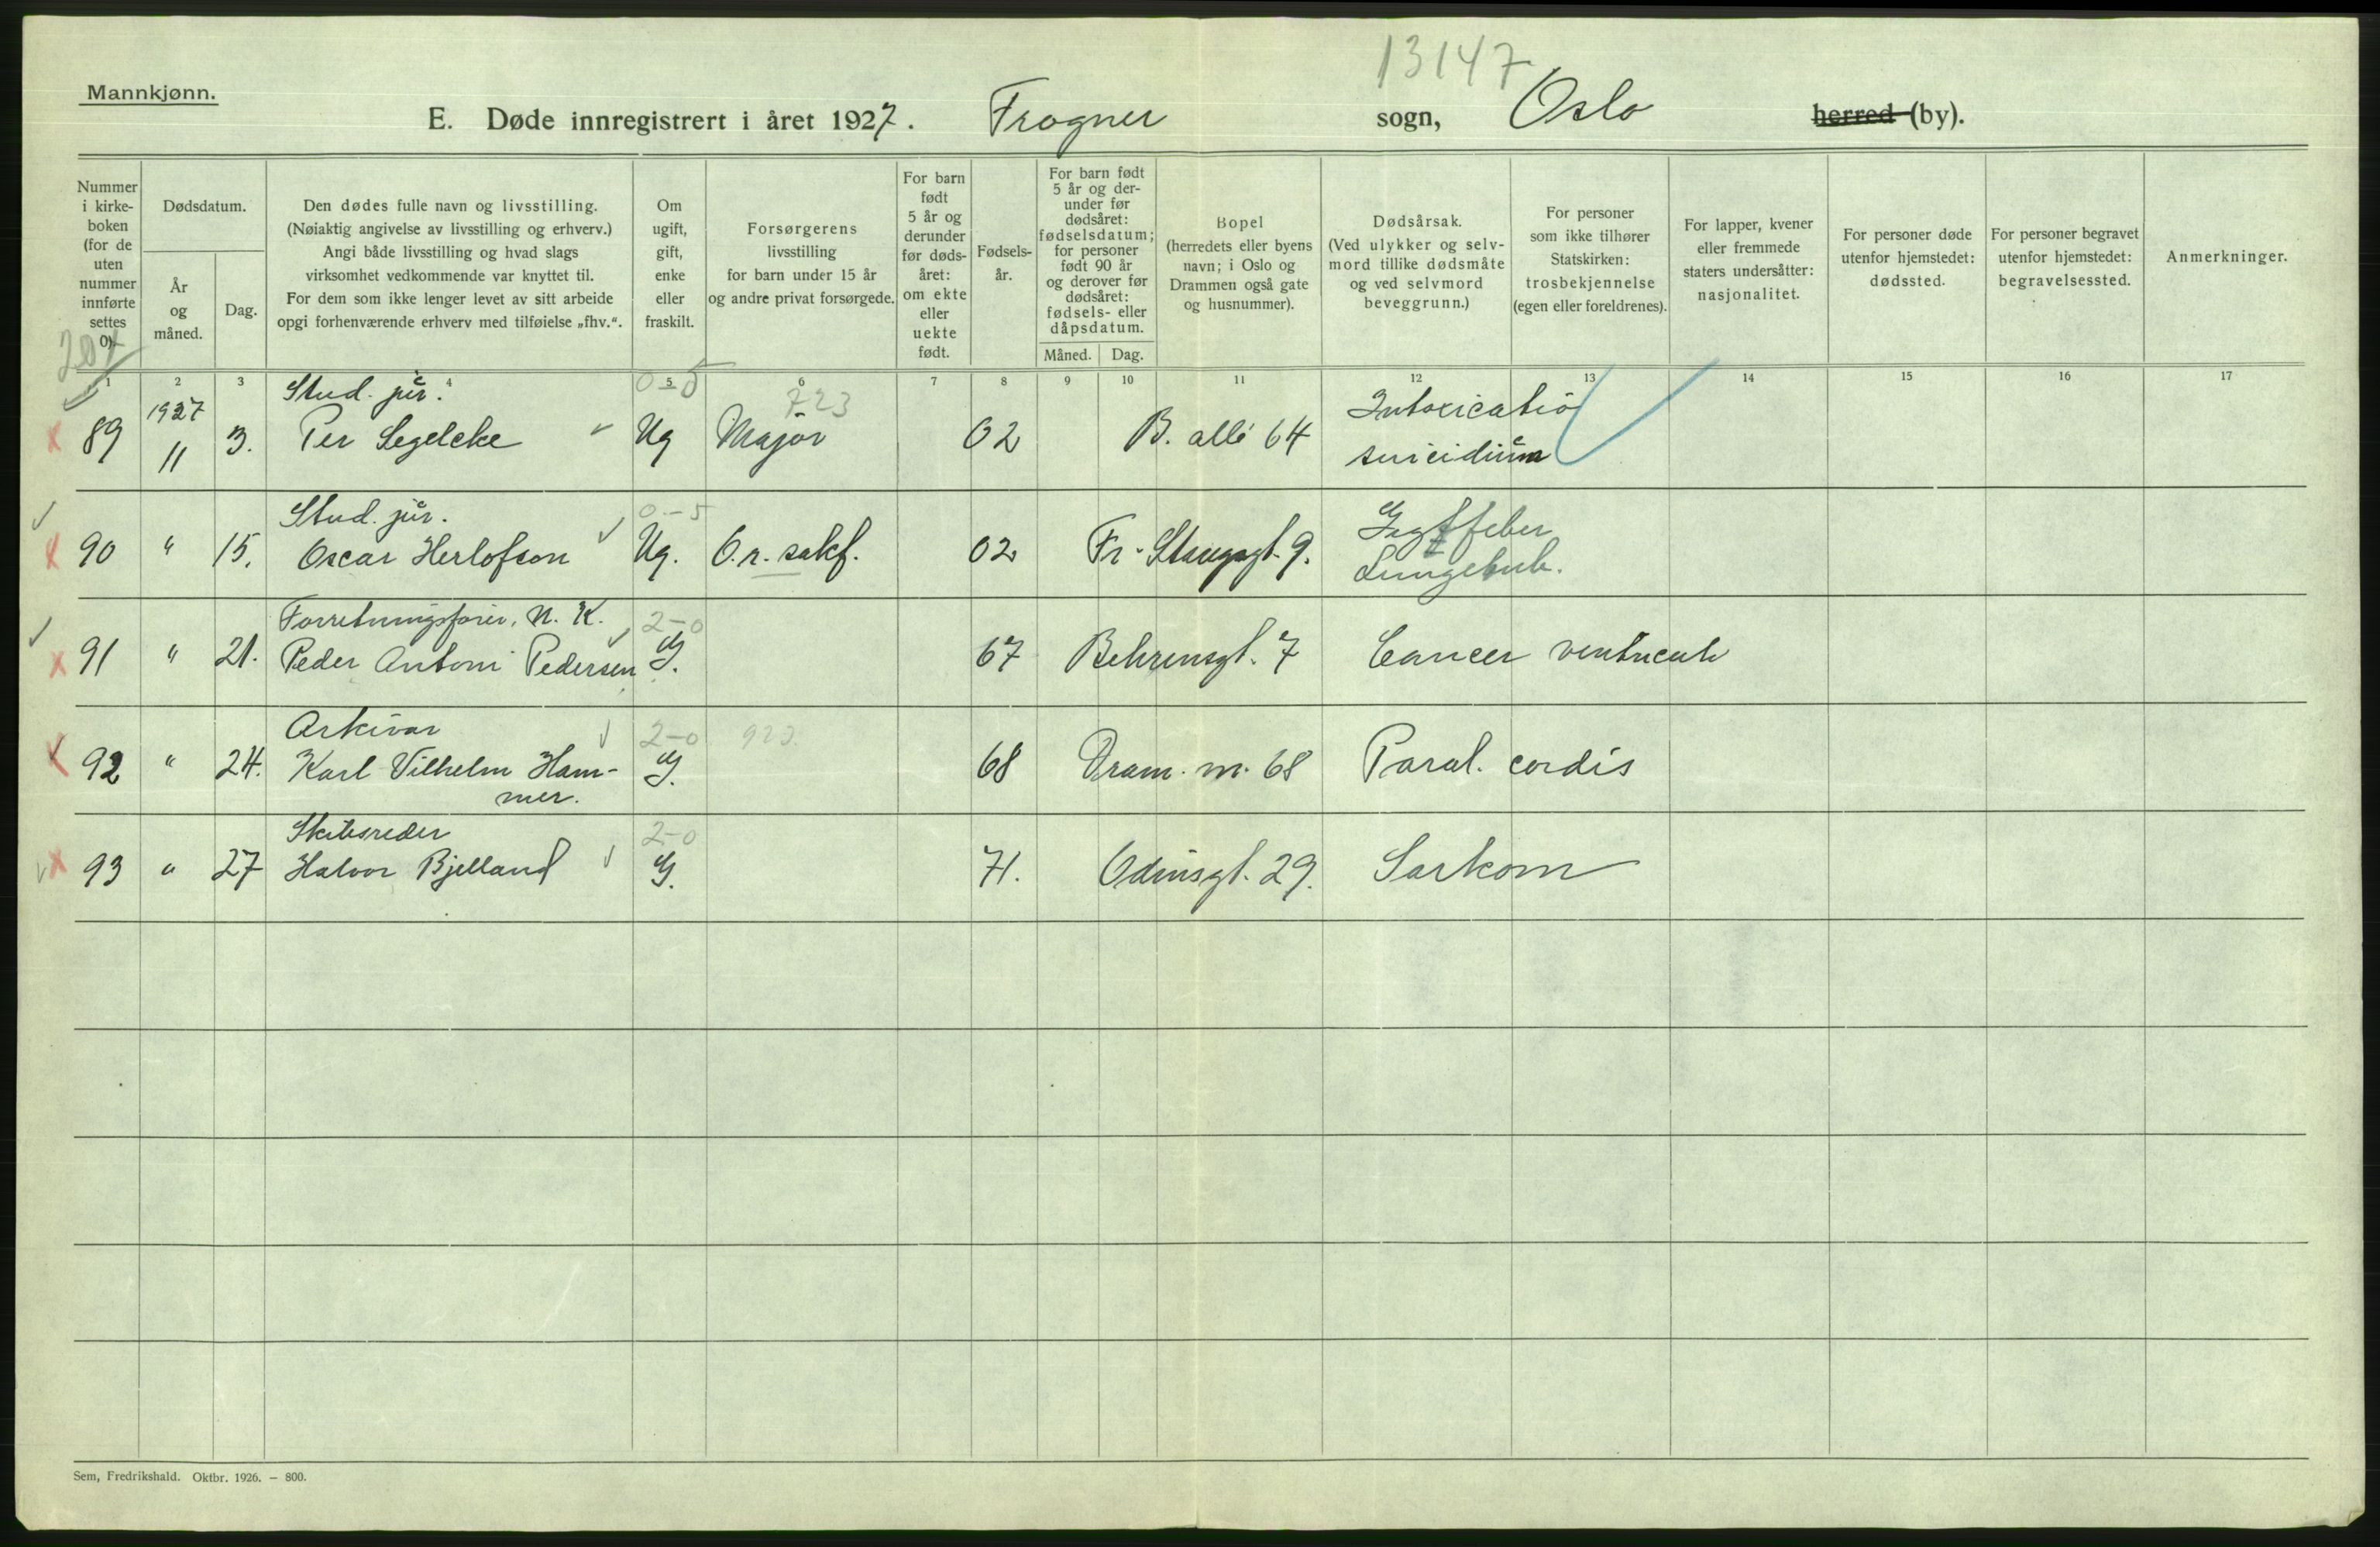 13147
Mannkjønn.
E. Døde innregistrert i året 1927. Frogner sogn, Oslo herred (by).
Nummer i kirke- boken (for de uten nummer innførte settes 0).
Dødsdatum.
År og måned.
Dag.
Den dødes fulle navn og livsstilling.
(Nøiaktig angivelse av livsstilling og erhverv.)
Angi både livsstilling og hvad slags
virksomhet vedkommende var knyttet til.
For dem som ikke lenger levet av sitt arbeide
opgi forhenværende erhverv med tilføielse „fhv.“.
Om ugift, gift, enke eller fraskilt.
Forsørgerens
livsstilling
for barn under 15 år
og andre privat forsørgede.
For barn født 5 år og derunder før døds- året: om ekte eller uekte født.
Fødsels- år.
For barn født 5 år og der- under før dødsåret: fødselsdatum; for personer født 90 år og derover før dødsåret: fødsels- eller dåpsdatum.
Måned.
Dag.
Bopel
(herredets eller byens
navn; i Oslo og
Drammen også gate
og husnummer).
Dødsårsak.
(Ved ulykker og selv-
mord tillike dødsmåte
og ved selvmord
beveggrunn.)
For personer
som ikke tilhører
Statskirken:
trosbekjennelse
(egen eller foreldrenes).
For lapper, kvener
eller fremmede
staters undersåtter:
nasjonalitet.
For personer døde
utenfor hjemstedet:
dødssted.
For personer begravet
utenfor hjemstedet:
begravelsessted.
Anmerkninger.
1 2 3 4 5 6 7 8 9 10 11 12 13 14 15 16 17
1927 Stud. jur. 0-5 723 Intoxicatio
89 11 3. Per Segelcke Ug Major 02 B. allé 64 suicidium
Stud. jur. 0-5 Gigtfeber
90 " 15. Oscar Herlofson Ug. O.r. sakf. 02 Fr. Stangsgt. 9. Lungebet.
Forretningsfører, N. K. 2-0
91 " 21. Peder Antoni Pedersen G. 67 Behrensgt. 7 Cancer ventriculi
Arkivar 2-0
92 " 24. Karl Vilhelm Ham- G. 68 Dram. v. 68 Paral. cordis
mer.
Skibsreder 2-0
93 " 27 Halvor Bjelland G. 71. Odinsgt. 29. Sarkom
Sem, Fredrikshald. Oktbr. 1926. – 800.